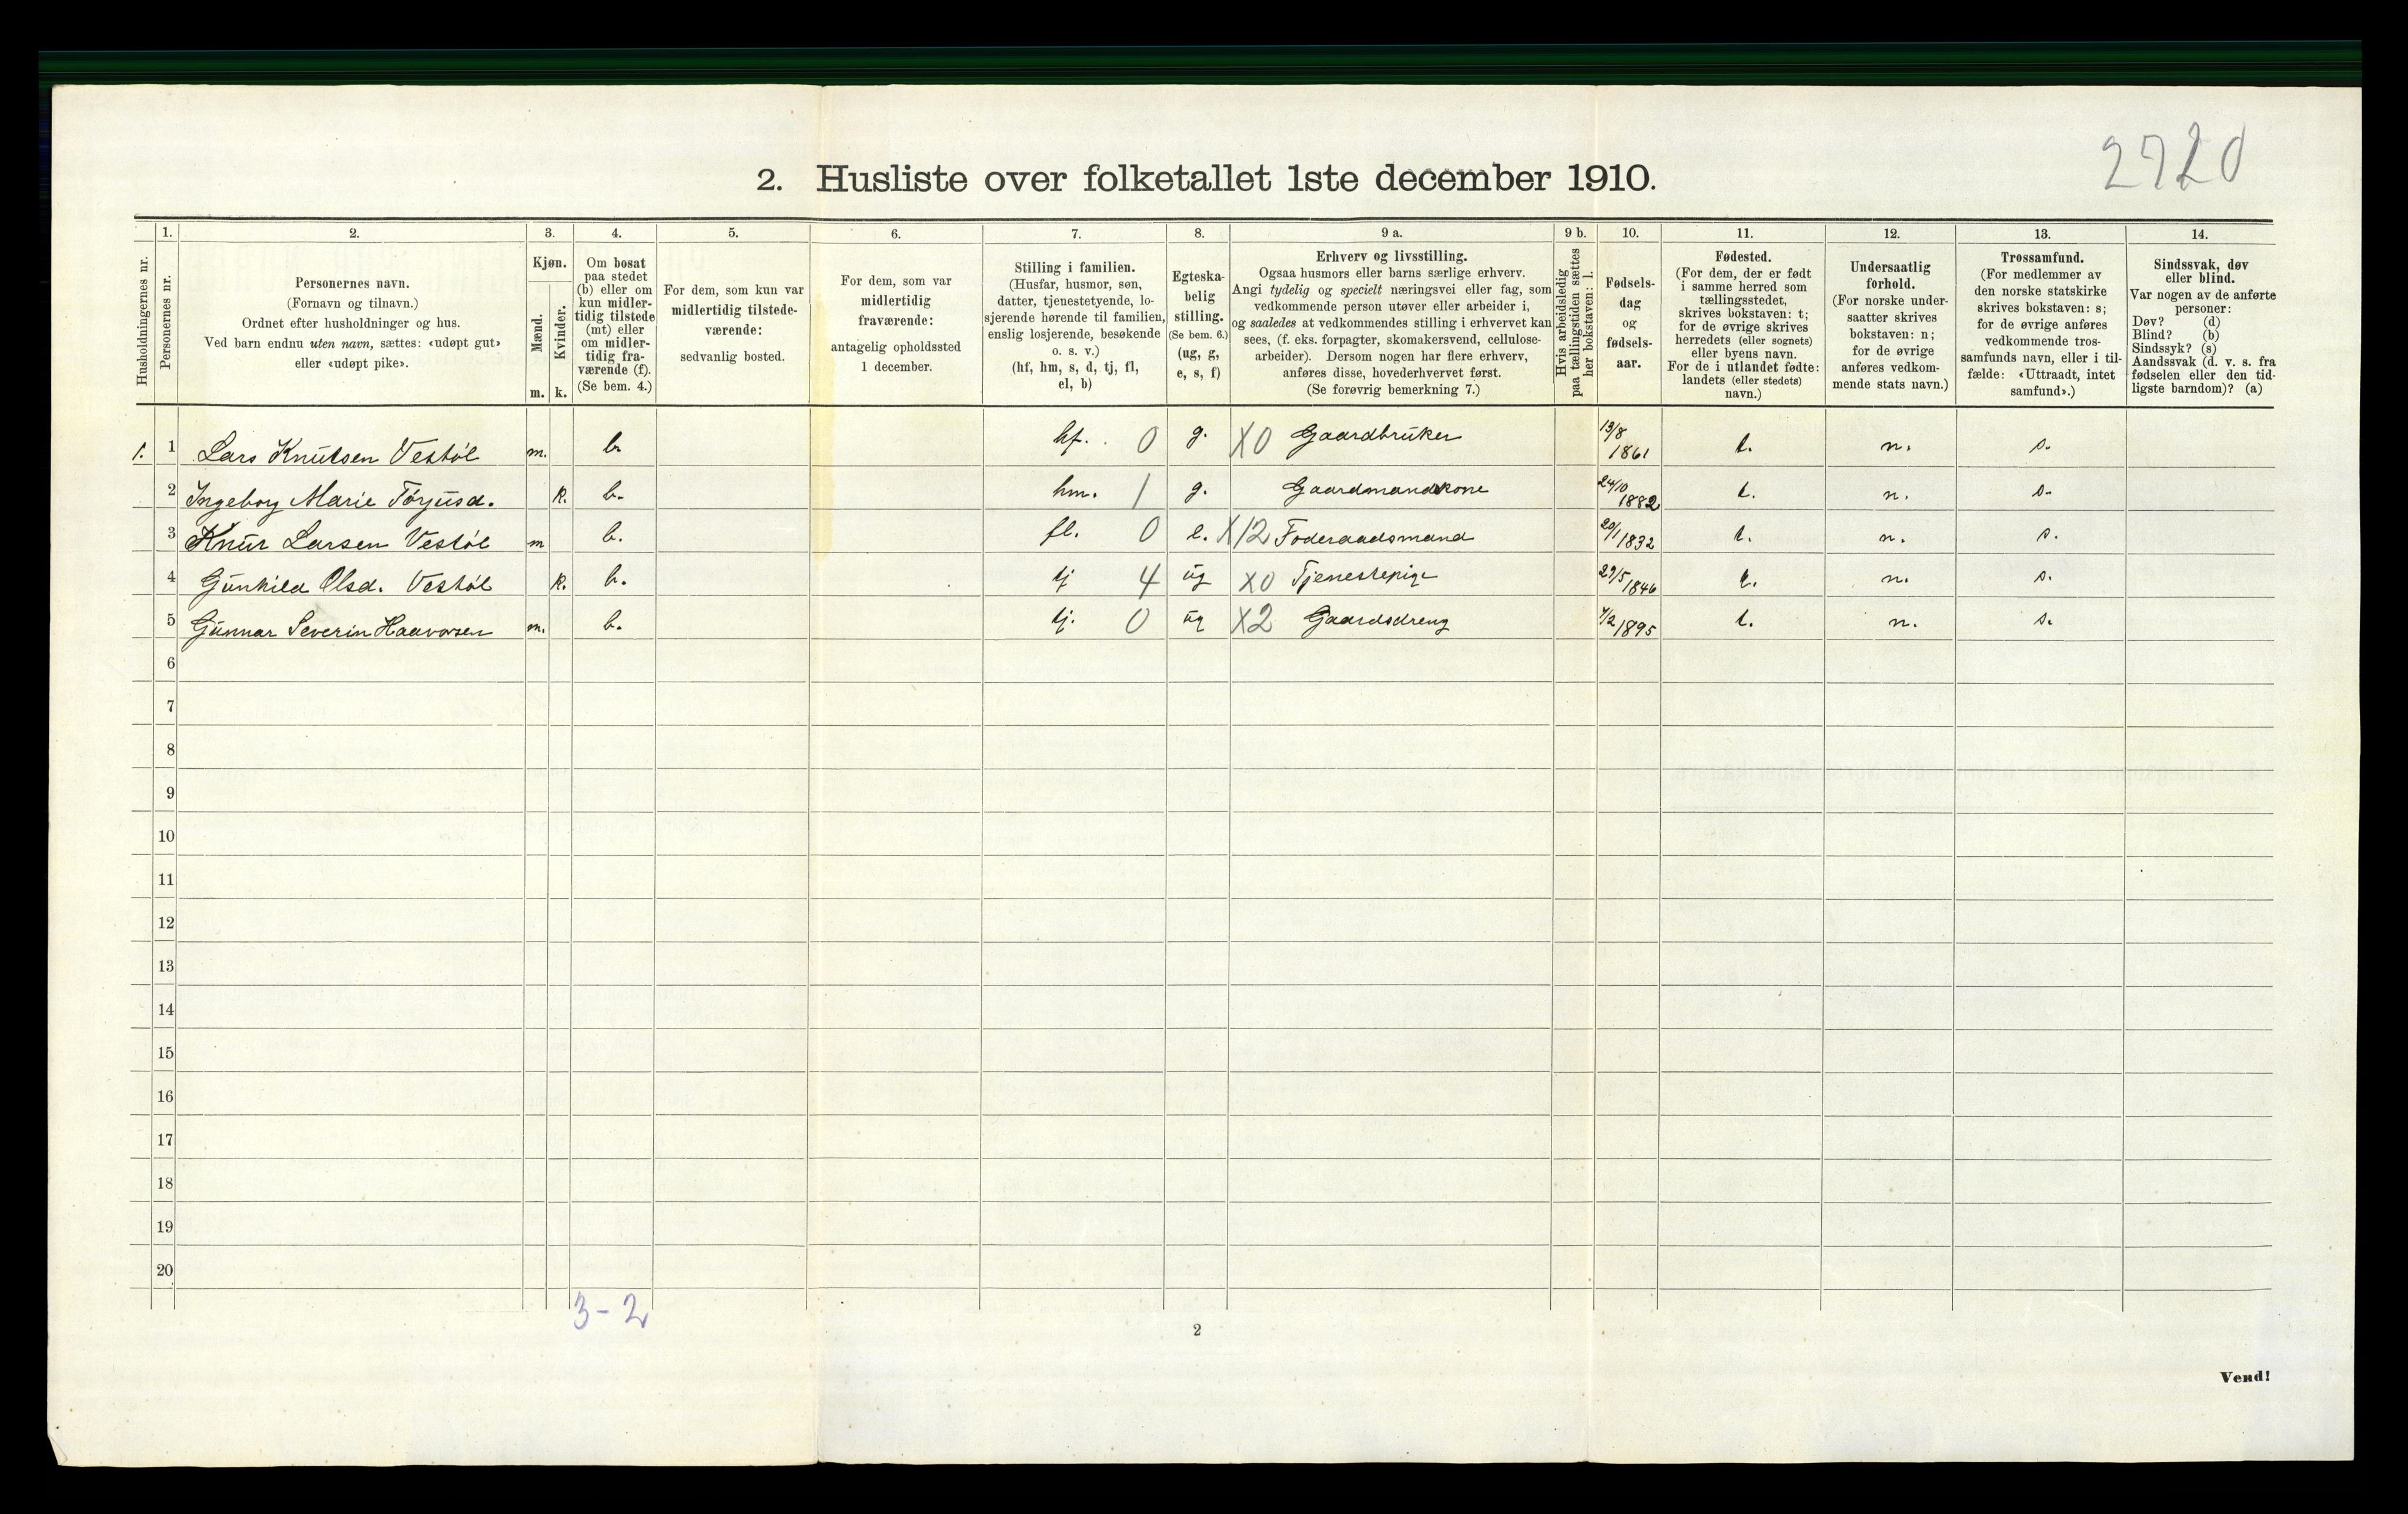 2720
2. Husliste over folketallet 1ste december 1910.
Husholdningernes nr.
1.
Personernes nr.
2.
Personernes navn.
(Fornavn og tilnavn.)
Ordnet efter husholdninger og hus.
Ved barn endnu uten navn, sættes: «udøpt gut»
eller «udøpt pike».
3.
Kjøn.
Mænd.
Kvinder.
m. k.
4.
Om bosat
paa stedet
(b) eller om
kun midler-
tidig tilstede
(mt) eller
om midler-
tidig fra-
værende (f).
(Se bem. 4.)
5.
For dem, som kun var
midlertidig tilstede-
værende:
sedvanlig bosted.
6.
For dem, som var
midlertidig
fraværende:
antagelig opholdssted
1 december.
7.
Stilling i familien.
(Husfar, husmor, søn,
datter, tjenestetyende, lo-
sjerende hørende til familien,
enslig losjerende, besøkende
o. s. v.)
(hf, hm, s, d, tj, fl,
el, b)
8.
Egteska-
belig
stilling.
(Se bem. 6.)
(ug, g,
e, s, f)
9 a.
Erhverv og livsstilling.
Ogsaa husmors eller barns særlige erhverv.
Angi tydelig og specielt næringsvei eller fag, som
vedkommende person utøver eller arbeider i,
og saaledes at vedkommendes stilling i erhvervet kan
sees, (f. eks. forpagter, skomakersvend, cellulose-
arbeider). Dersom nogen har flere erhverv,
anføres disse, hovederhvervet først.
(Se forøvrig bemerkning 7.)
9 b.
Hvis arbeidsledig
paa tællingstiden sættes
her bokstaven: l.
10.
Fødsels-
dag
og
fødsels-
aar.
11.
Fødested.
(For dem, der er født
i samme herred som
tællingsstedet,
skrives bokstaven: t;
for de øvrige skrives
herredets (eller sognets)
eller byens navn.
For de i utlandet fødte:
landets (eller stedets)
navn.)
12.
Undersaatlig
forhold.
(For norske under-
saatter skrives
bokstaven: n;
for de øvrige
anføres vedkom-
mende stats navn.)
13.
Trossamfund.
(For medlemmer av
den norske statskirke
skrives bokstaven: s;
for de øvrige anføres
vedkommende tros-
samfunds navn, eller i til-
fælde: «Uttraadt, intet
samfund».)
14.
Sindssvak, døv
eller blind.
Var nogen av de anførte
personer:
Døv? (d)
Blind? (b)
Sindssyk? (s)
Aandssvak (d. v. s. fra
fødselen eller den tid-
ligste barndom)? (a)
1. 1 Lars Knutsen Vestøl m. b. hf. 0 g. X0 Gaardbruker 13/8 1861 t. n. s.
2 Ingeborg Marie Torjusd. k. b. hm. 1 g. Gaardmandskone 24/10 1882 t. n. s.
3 Knut Larsen Vestøl m b. fl. 0 e. X12 Foderaadsmand 20/1 1832 t. n. s.
4 Gunhild Olsd. Vestøl k. b. tj 4 ug X0 Tjenestepige 29/5 1846 t. n. s.
5 Gunnar Severin Haavorsen m. b. tj. 0 ug X2 Gaardsdreng 4/2 1895 t. n. s.
6
7
8
9
10
11
12
13
14
15
16
17
18
19
20
3-2
2
Vend!